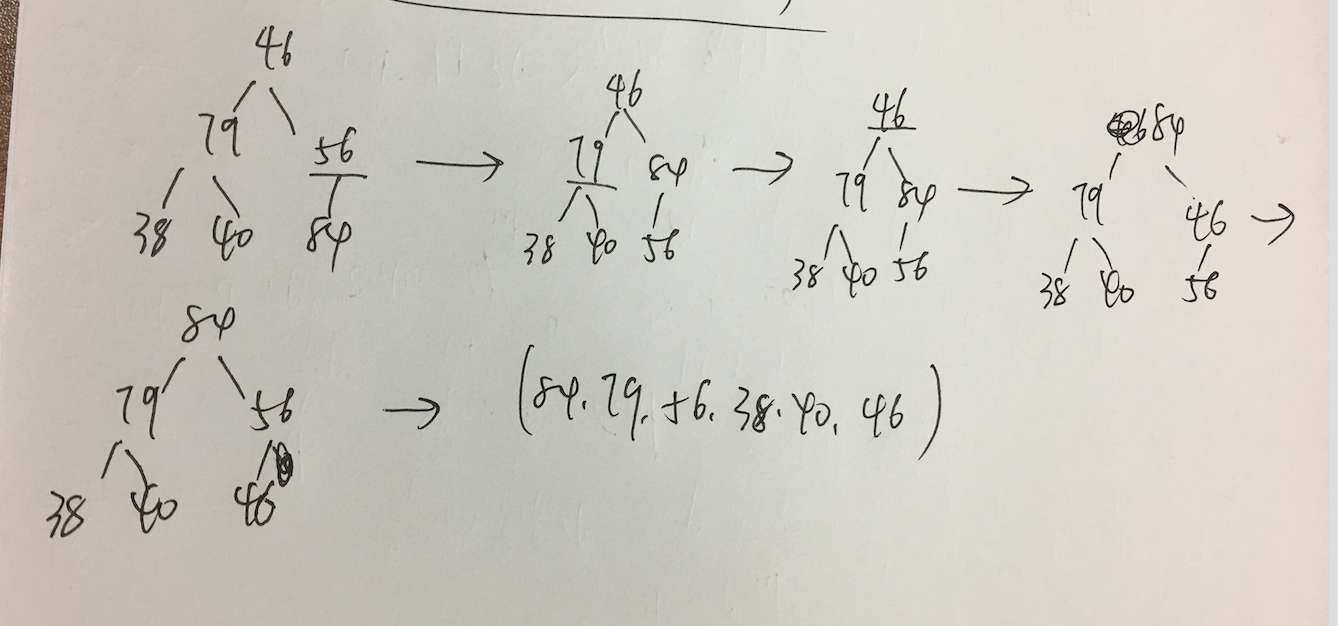 46 46 46 84
79 56 → 79 84 → 79 84 → 79 46 →
38 40 84 38 40 56 38 40 56 38 40 56
84
79 56 → (84. 79. 56. 38. 40. 46)
38 40 46